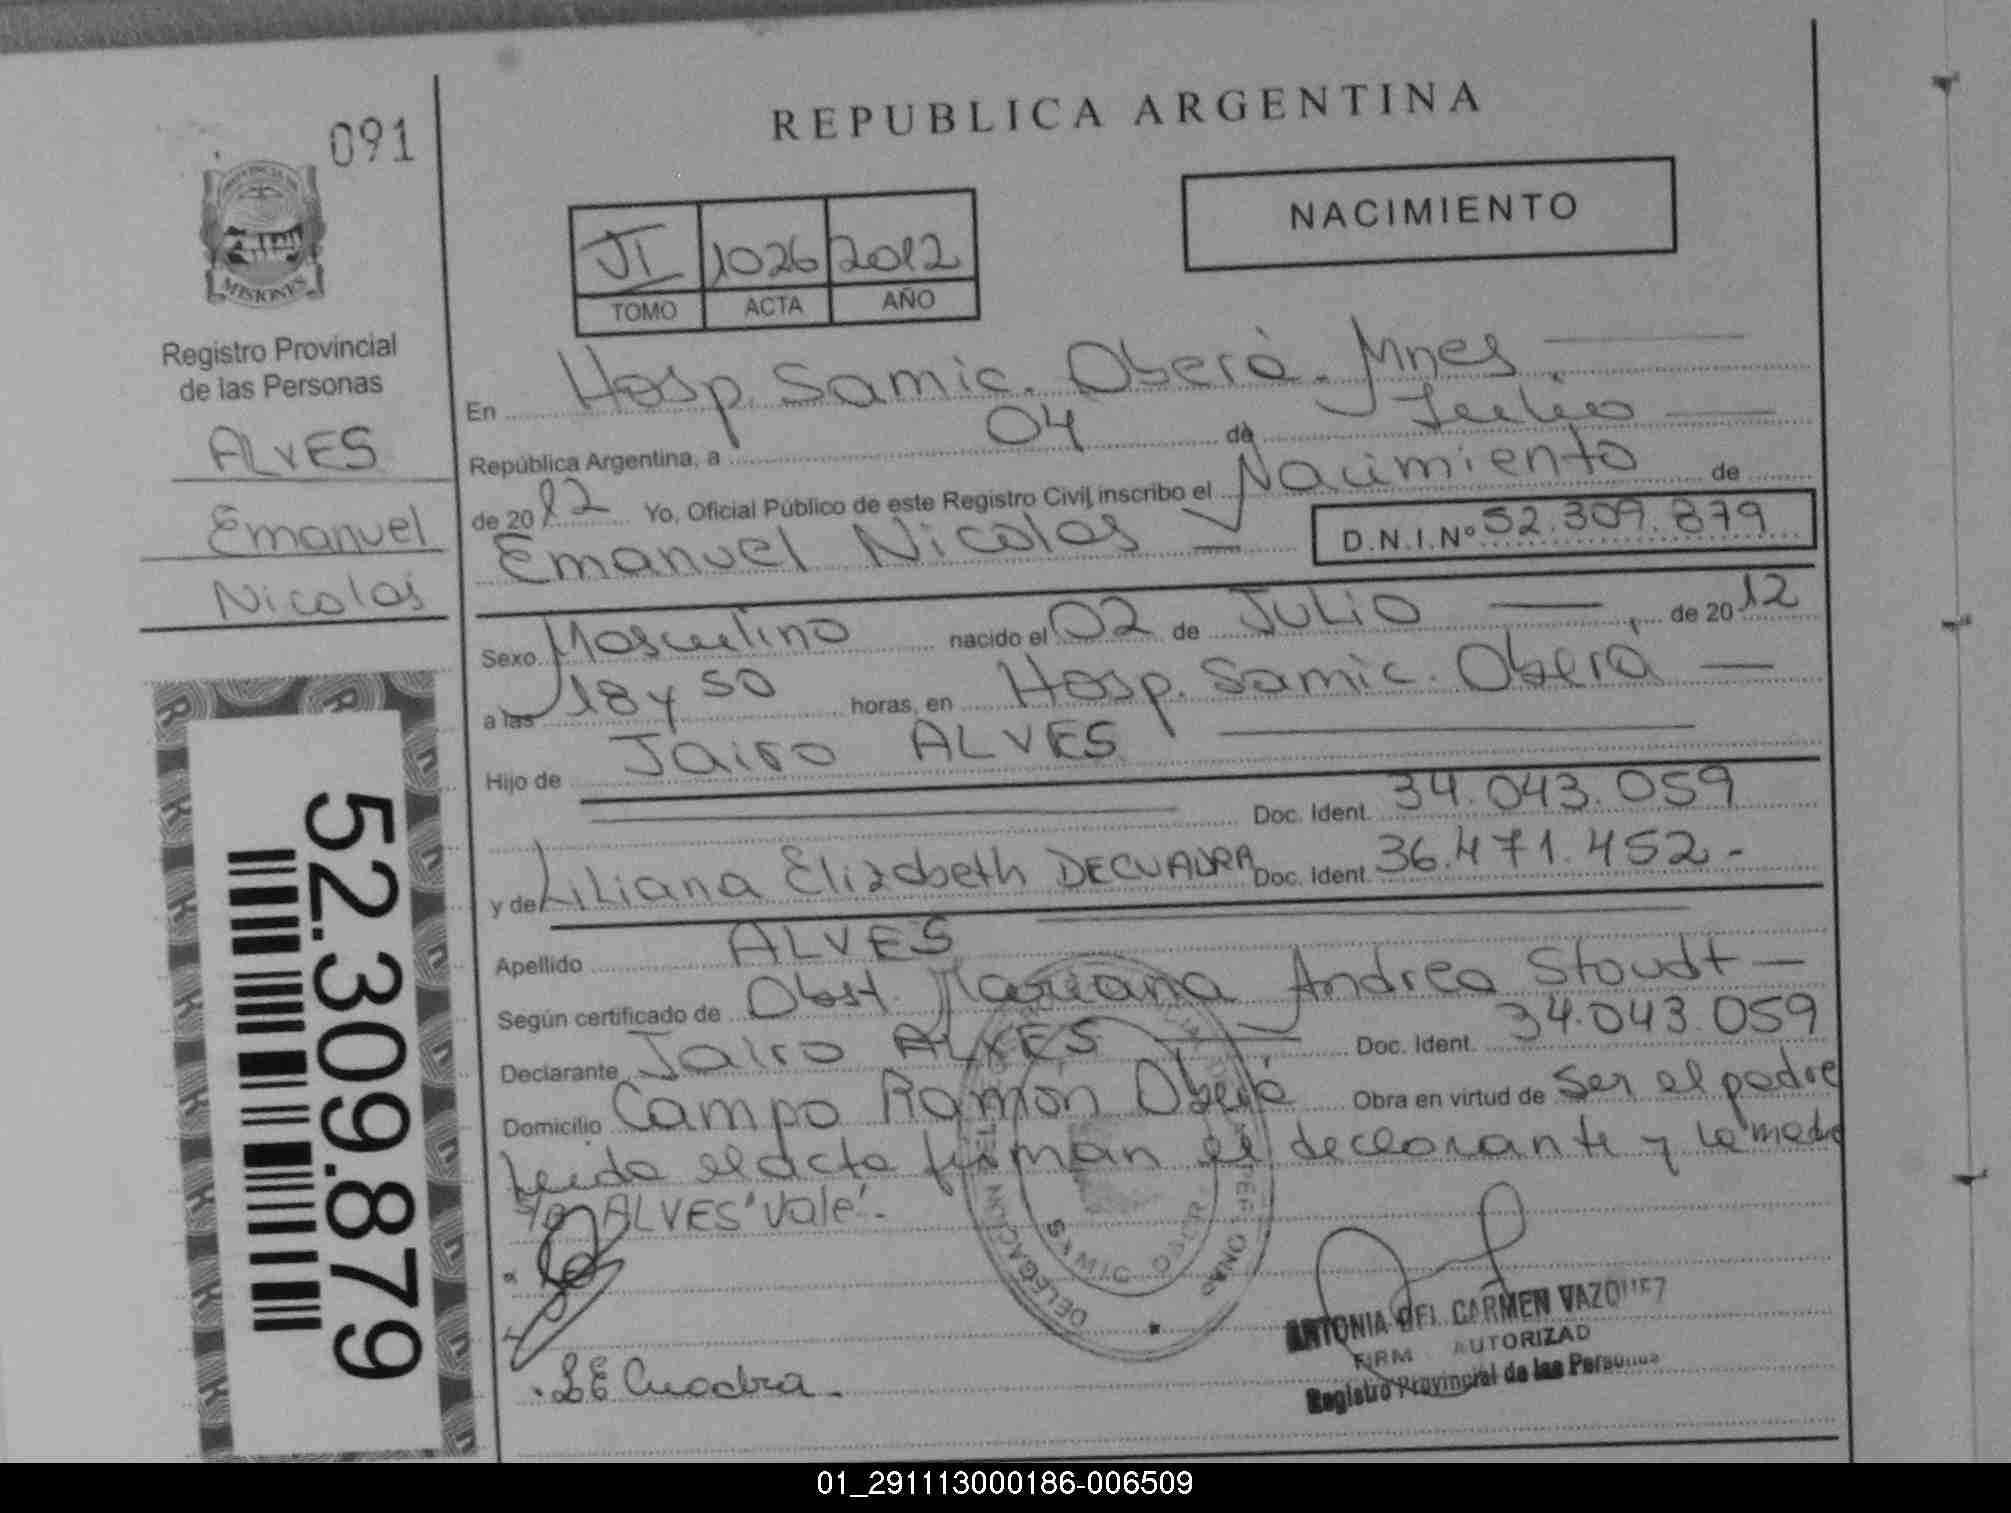 091
REPUBLICA ARGENTINA
NACIMIENTO
1026 2012
TOMO ACTA AÑO
MISIONES
Registro Provincial
de las Personas
ALVES
Emanuel
Nicolas
En Hosp. Samic. Oberá. Mnes.
República Argentina, a 04 de Julio
de 2012 Yo, Oficial Público de este Registro Civil, inscribo el Nacimiento de
Emanuel Nicolas D.N.I.Nº 52.309.879
Sexo Masculino nacido el 02 de JULIO, de 2012
a las 18 y 50 horas, en Hosp. Samic. Oberá
Hijo de Jairo ALVES
Doc. Ident. 34.043.059
y de Liliana Elizabeth DECUADRA Doc. Ident. 36.471.452.-
Apellido ALVES
Según certificado de Obst. Mariana Andrea Stoudt
Declarante Jairo ALVES Doc. Ident. 34.043.059
Domicilio Campo Ramón Oberá Obra en virtud de ser el padre
Leída el acta firman el declarante y la madre
ALVES "Vale".-
L E Cuadra.
ANTONIA DEL CARMEN VAZQUEZ
AUTORIZAD
Registro Provincial de las Personas
52.309.879
01_291113000186-006509